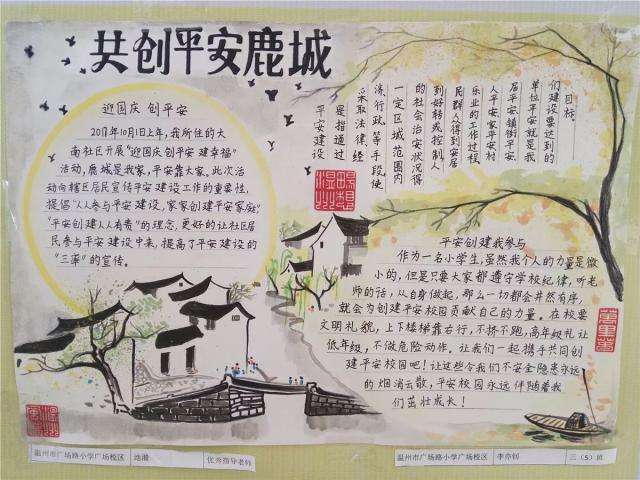 共创平安鹿城
迎国庆 创平安
2017年10月1日上午,我所住的大
南社区开展"迎国庆创平安 建幸福"
活动,鹿城是我家,平安靠大家。此次活
动向辖区居民宣传平安建设工作的重要性,
提倡"人人参与平安建设,家家创建平安家庭"
"平安创建人人有责"的理念,更好的让社区居
民参与平安建设中来,提高了平安建设的
"三率"的宣传。
平安建设
是指通过
采取法律经
济、行政等手段使
一定区域范围内
的社会治安状况得
到好转或控制,人
民群众得到安居
乐业的工作过程
人平安家平安村
居平安镇街平安
单位平安就是我
们建设要达到的
目标。
平安创建我参与
作为一名小学生,虽然我个人的力量是微
小的,但是只要大家都遵守学校纪律,听老
师的话,从自身做起,那么一切都会井然有序,
就会为创建平安校园贡献自己的力量。在校要
文明礼貌,上下楼梯靠右行,不挤不跑,高年级礼让
低年级,不做危险动作。让我们一起携手共同创
建平安校园吧!让这些令我们不安全隐患永远
的烟消云散,平安校园永远伴随着我
们茁壮成长!
温州市广场路小学广场校区 池潜 优秀指导老师
温州市广场路小学广场校区 李亦钊 三（5）班